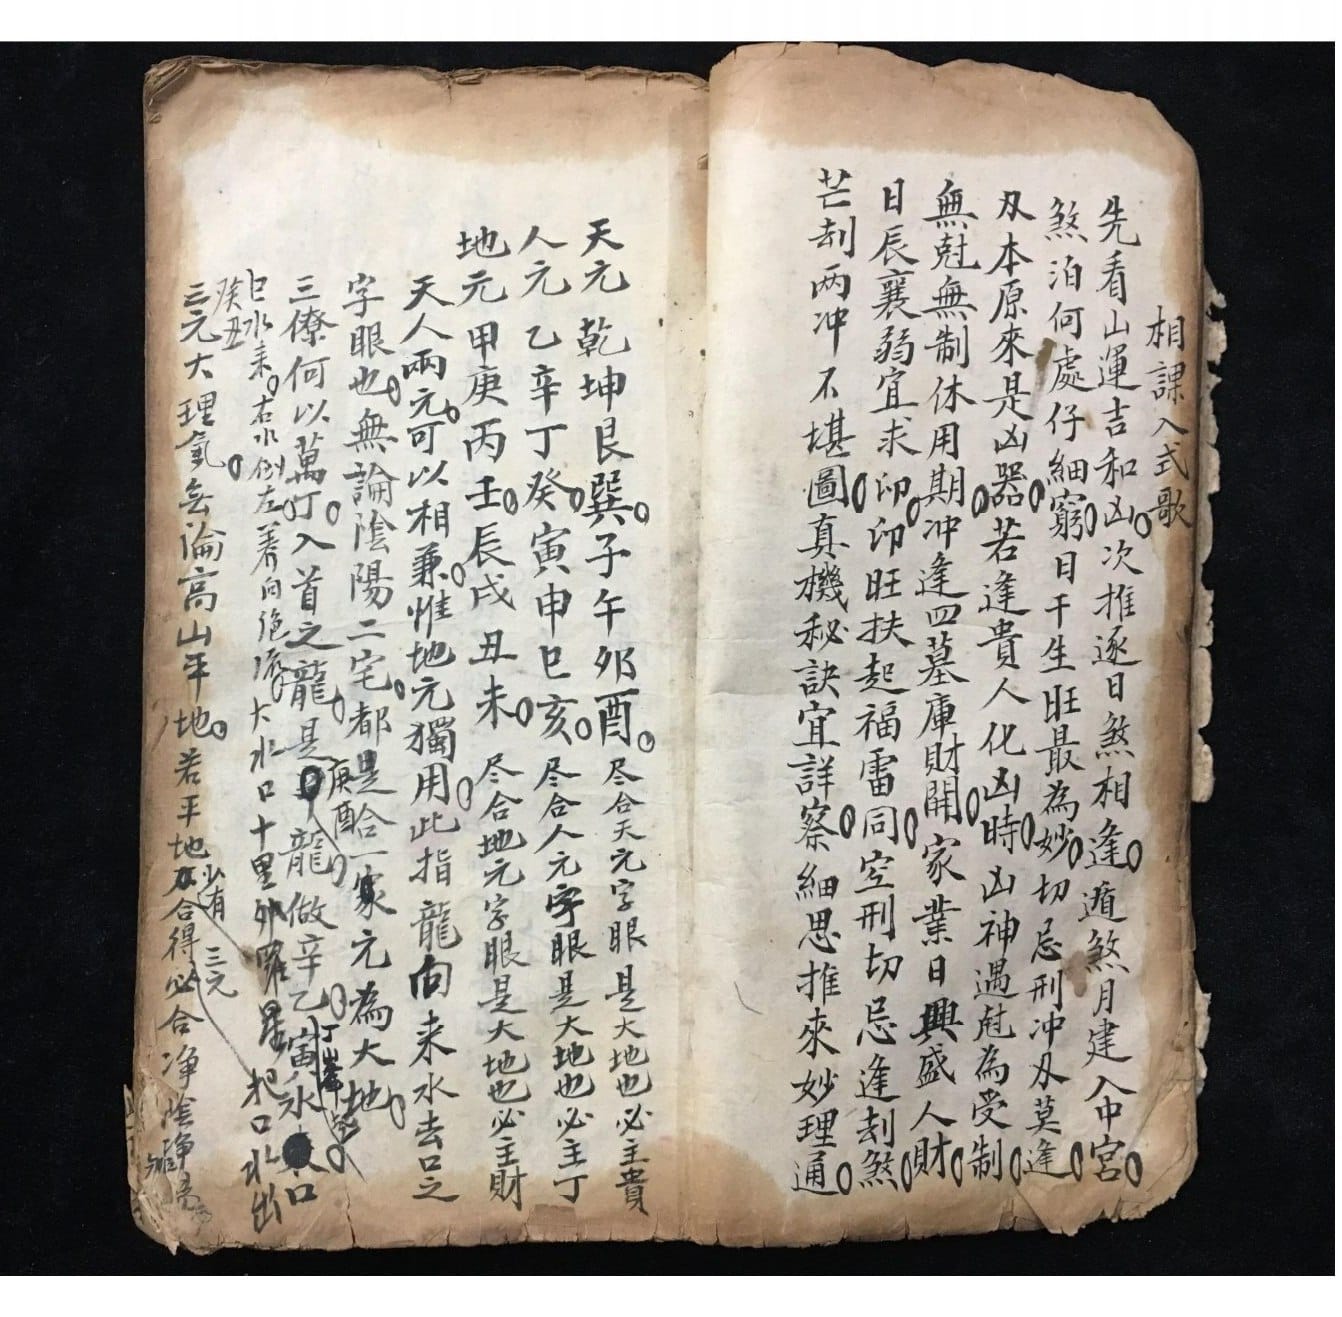 相課入式歌
先看山運吉和凶次推逐日煞相逢遁煞月建入中宮
煞泊何處仔細窮日干生旺最為妙切忌刑冲刄莫逢
刄本原來是凶器若逢貴人化凶時凶神遇尅為受制
無尅無制休用期冲逢四墓庫財開家業日興盛人財
日辰襄弱宜求印印旺扶起福雷同空刑切忌逢刦煞
芒刦两冲不堪圖真機秘訣宜詳察細思推來妙理通
天元乾坤艮巽子午夘酉尽合天元字眼是大地也必主貴
人元乙辛丁癸寅申巳亥尽合人元字眼是大地也必主丁
地元甲庚丙壬辰戌丑未尽合地元字眼是大地也必主財
天人兩元可以相兼惟地元獨用此指龍向来水去口之
字眼也無論陰陽二宅都是合一家元為大地
三僚何以萬丁入首之龍是龍做辛乙寅水口
庚酉
丁峯
巳水来右水倒左养向绝流大水口十里外羅星把口水出
癸丑
三元大理氣無論高山平地若平地合得必合净陰净
少有三元